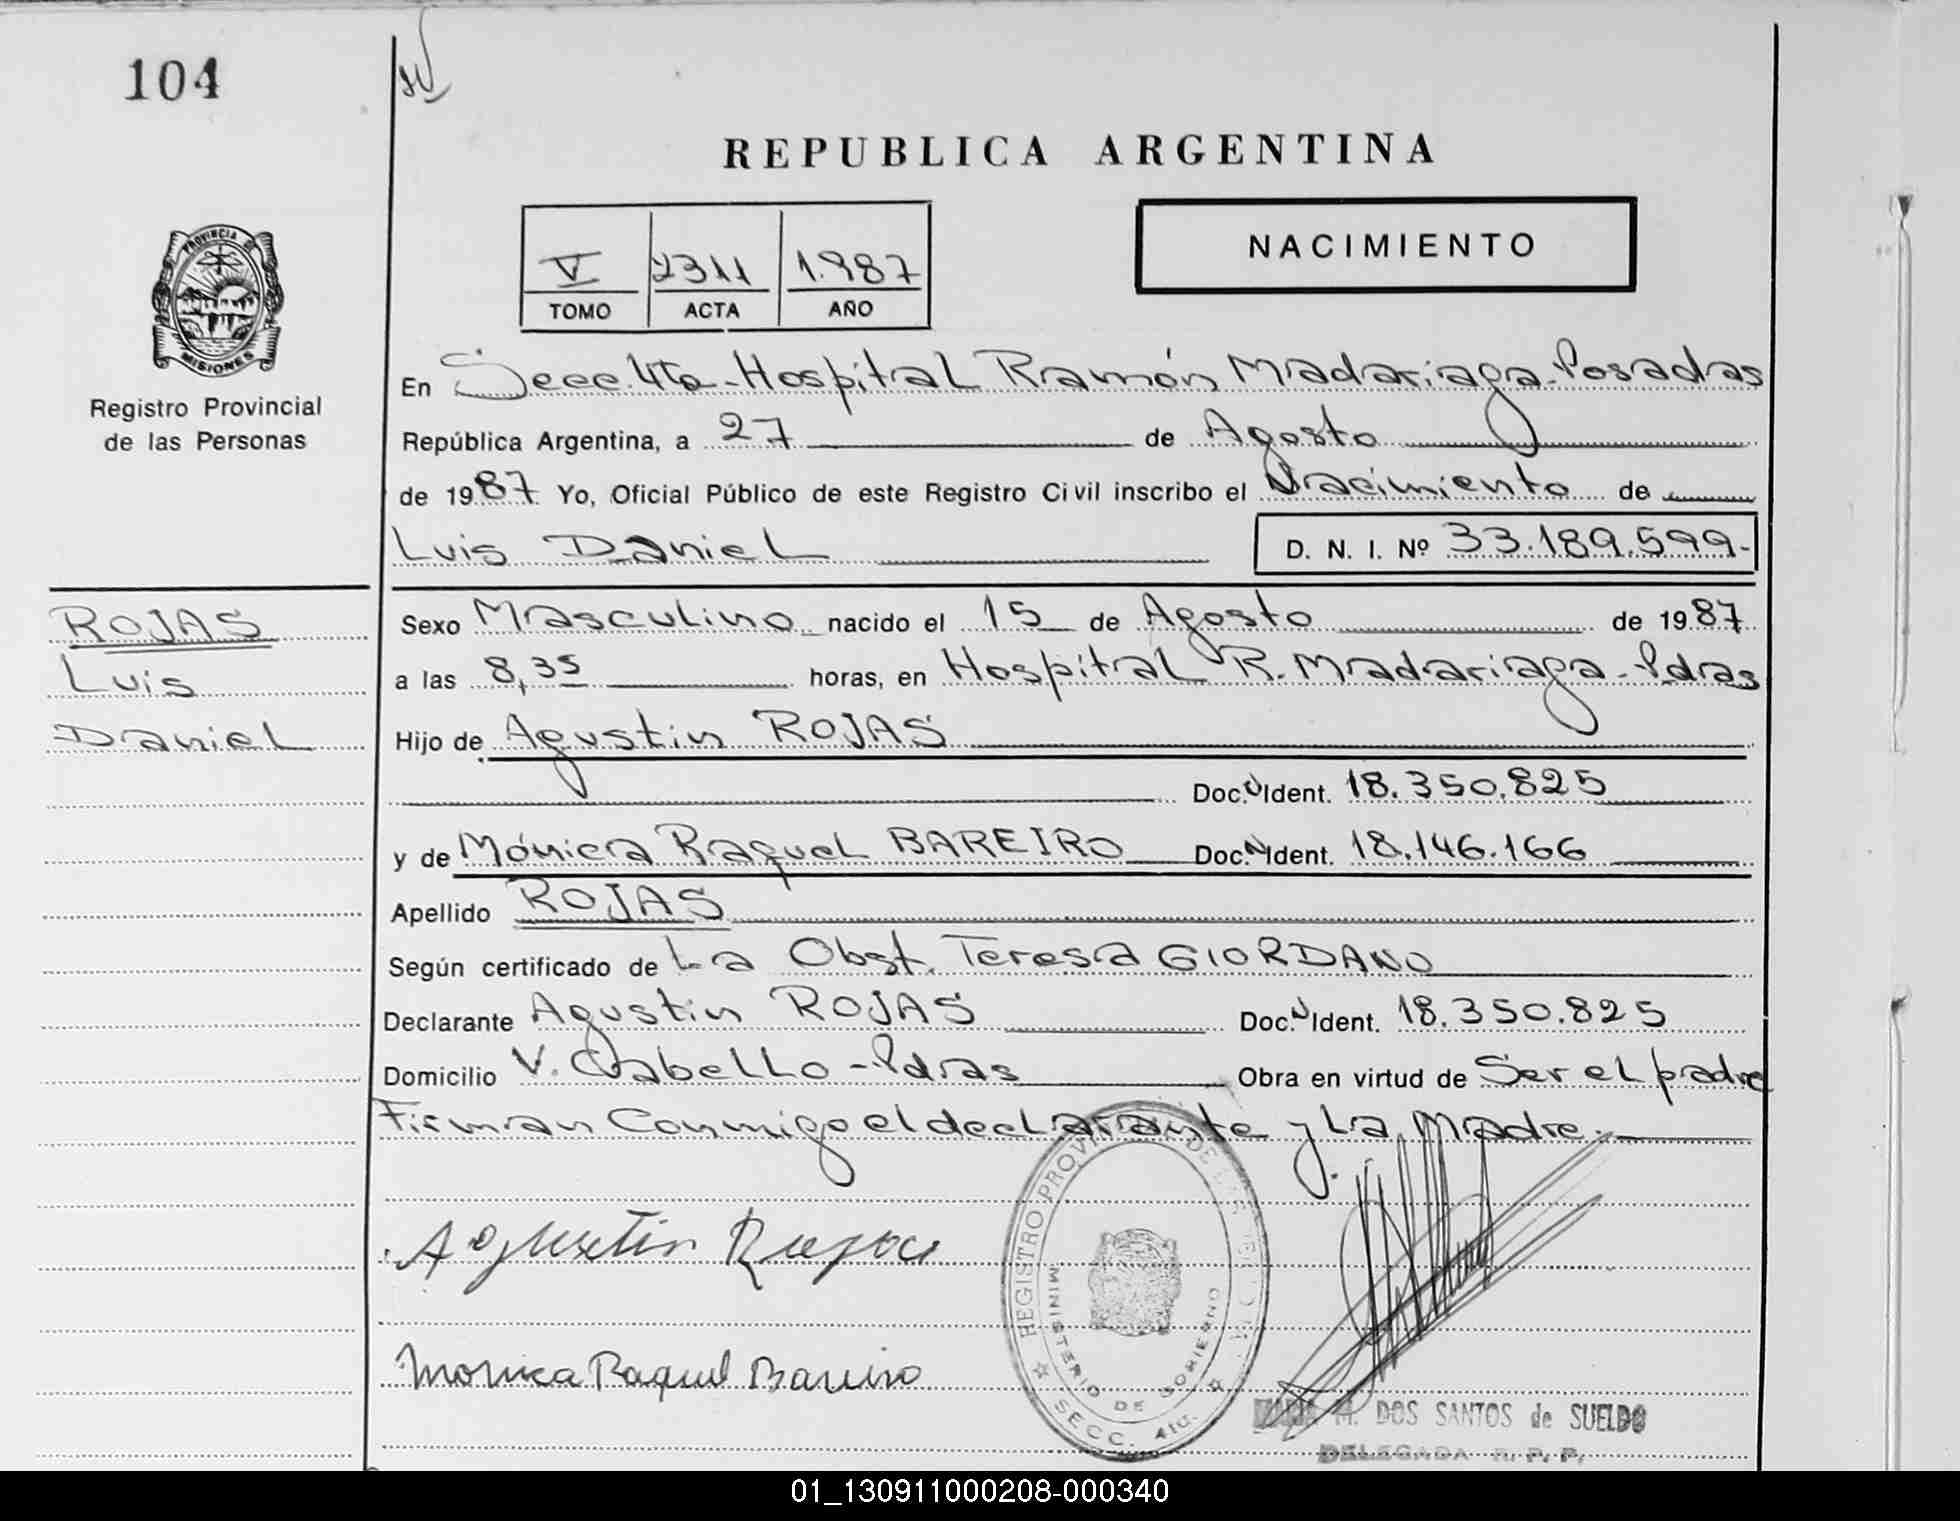 104
REPUBLICA ARGENTINA
V 2311 1.987
TOMO ACTA AÑO
NACIMIENTO
PROVINCIA DE
MISIONES
Registro Provincial
de las Personas
En Secc. 4ta - Hospital Ramón Madariaga - Posadas
República Argentina, a 27 de Agosto
de 1987 Yo, Oficial Público de este Registro Civil inscribo el Nacimiento de
Luis Daniel D. N. I. Nº 33.189.599.-
ROJAS
Luis
Daniel
Sexo Masculino nacido el 15 de Agosto de 1987
a las 8,35 horas, en Hospital R. Madariaga - Pdas
Hijo de Agustin ROJAS
Doc. Ident. 18.350.825
y de Mónica Raquel BAREIRO Doc. Ident. 18.146.166
Apellido ROJAS
Según certificado de La Obst. Teresa GIORDANO
Declarante Agustin ROJAS Doc. Ident. 18.350.825
Domicilio V. Cabello - Pdas Obra en virtud de Ser el padre
Firman Conmigo el declarante y La Madre.
Agustin Rojas
Monica Raquel Bareiro
REGISTRO PROVINCIAL DE LAS PERSONAS
MINISTERIO DE GOBIERNO
SECC. 4ta.
M. DOS SANTOS de SUELDO
DELEGADA R. P. P.
01_130911000208-000340